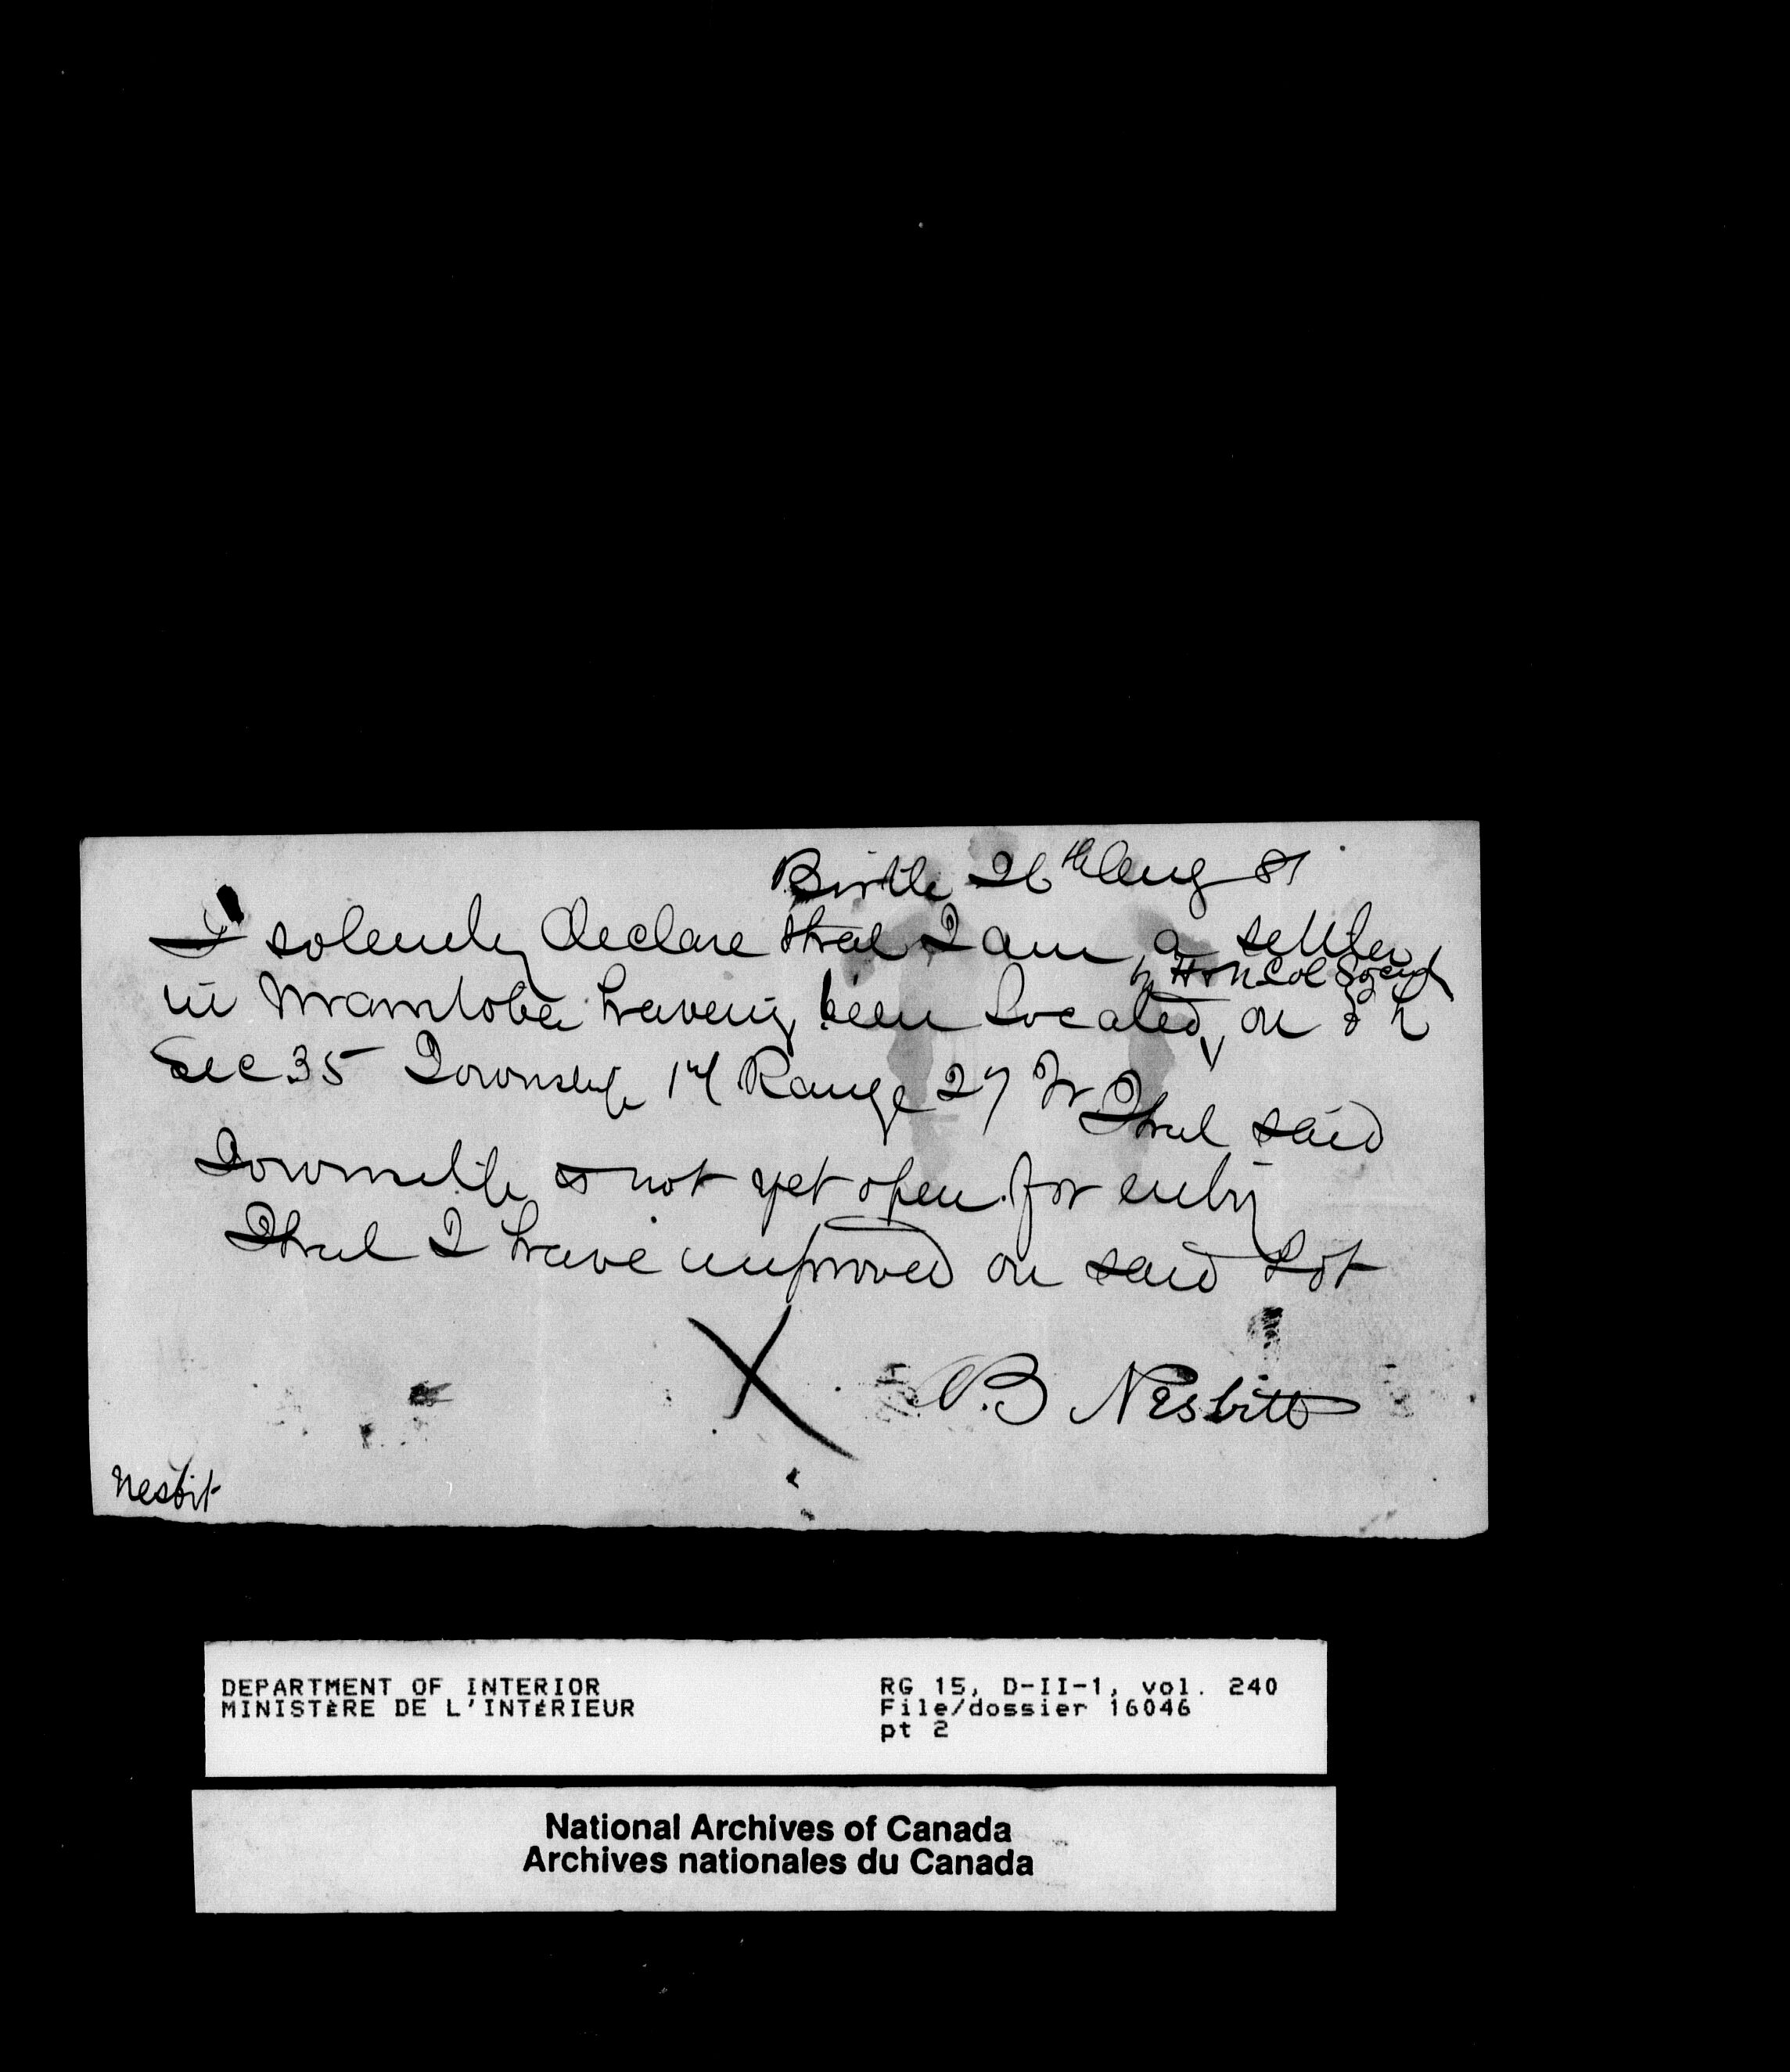 Birtle 26th Aug 81
I solemnly declare that I am a settler
by H & N Col Society
in Manitoba having been located on
Sec 35 Township 14 Range 27 W That said
Township is not yet open for entry
That I have improved on said Lot
X B Nesbitt
Nesbit
DEPARTMENT OF INTERIOR
MINISTÈRE DE L'INTÉRIEUR
RG 15, D-II-1, vol. 240
File/dossier 16046
pt 2
National Archives of Canada
Archives nationales du Canada